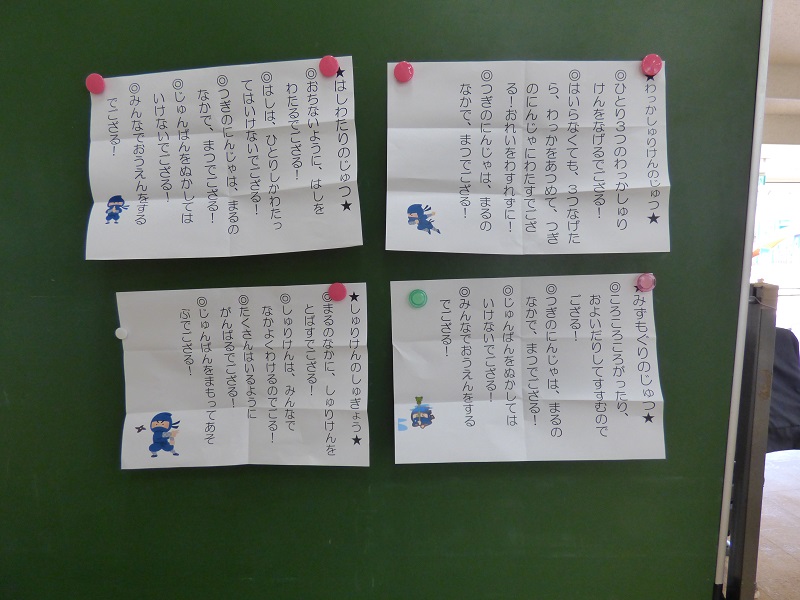 ★わっかしゅりけんのじゅつ★
◎ひとり３つのわっかしゅり
けんをなげるでござる！
◎はいらなくても、３つなげた
ら、わっかをあつめて、つぎ
のにんじゃにわたすでござ
る！おれいをわすれずに！
◎つぎのにんじゃは、まるの
なかで、まつでござる！
★はしわたりのじゅつ★
◎おちないように、はしを
わたるでござる！
◎はしは、ひとりしかわたっ
てはいけないでござる！
◎つぎのにんじゃは、まるの
なかで、まつでござる！
◎じゅんばんをぬかしては
いけないでござる！
◎みんなでおうえんをする
でござる！
★みずもぐりのじゅつ★
◎ころころころがったり、
およいだりしてすすむので
ござる！
◎つぎのにんじゃは、まるの
なかで、まつでござる！
◎じゅんばんをぬかしては
いけないでござる！
◎みんなでおうえんをする
でござる！
★しゅりけんのしゅぎょう★
◎まるのなかに、しゅりけんを
とばすでござる！
◎しゅりけんは、みんなで
なかよくわけるのでごる！
◎たくさんはいるように
がんばるでござる！
◎じゅんばんをまもってあそ
ぶでござる！